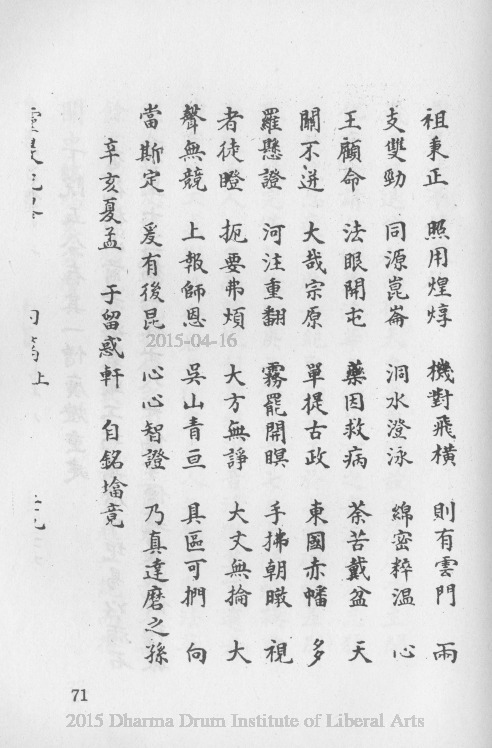 祖秉正 照用煌焞 機對飛橫 則有雲門 兩
支雙勁 同源崑崙 洞水澄泳 綿密粹溫 心
王顧命 法眼開屯 藥因救病 荼苦戴盆 天
關不迸 大哉宗原 單提古政 東國赤幡 多
羅懸證 河注重翻 霧罷開暝 手拂朝暾 視
者徒瞪 扼要弗煩 大方無諍 大文無掄 大
聲無競 上報師恩 吳山青亘 具區可捫 向
當斯定 爰有後昆 心心智證 乃真達磨之孫
辛亥夏孟 于留惑軒 自銘壖竟
71
2015-04-16
2015 Dharma Drum Institute of Liberal Arts